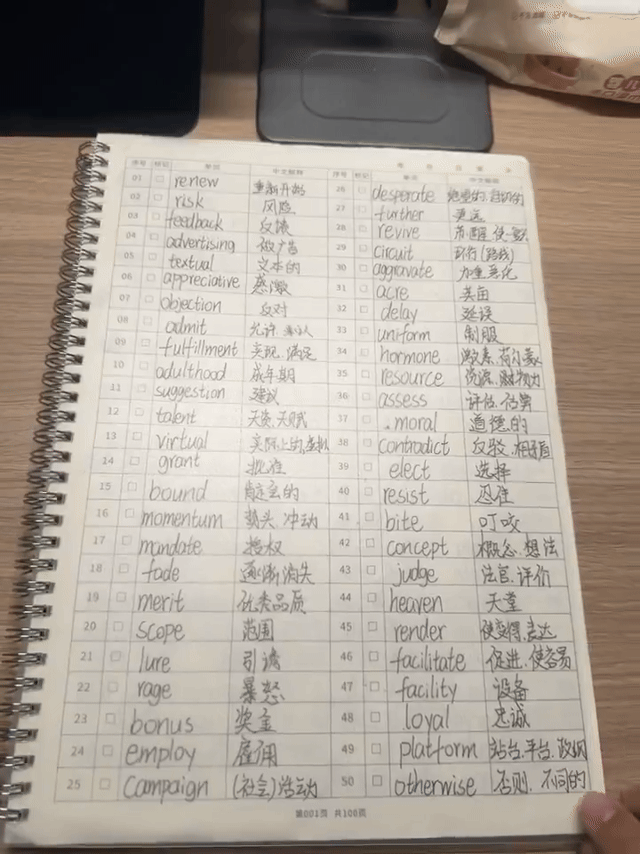 序号 标记 单词 中文解释
01 renew 重新开始
02 risk 风险
03 feedback 反馈
04 advertising 做广告
05 textual 文本的
06 appreciative 感激
07 objection 反对
08 admit 允许.承认
09 fulfillment 实现.满足
10 adulthood 成年期
11 suggestion 建议
12 talent 天资.天赋
13 virtual 实际上的.虚拟
14 grant 批准
15 bound 肯定的
16 momentum 势头.冲动
17 mandate 授权
18 fade 逐渐消失
19 merit 优秀品质
20 scope 范围
21 lure 引诱
22 rage 暴怒
23 bonus 奖金
24 employ 雇佣
25 campaign (社会)活动
序号 标记 单词 中文解释
26 desperate 绝望的
27 further 更远
28 revive 苏醒
29 circuit 环行(路线)
30 aggravate 加重.恶化
31 acre 英亩
32 delay 延误
33 uniform 制服
34 hormone 激素.荷尔蒙
35 resource 资源.财物
36 assess 评估.估算
37 moral 道德的
38 contradict 反驳.相矛盾
39 elect 选择
40 resist
41 bite 叮咬
42 concept 概念.想法
43 judge 法官.评价
44 heaven 天堂
45 render 使变得.表达
46 facilitate 促进.使容易
47 facility 设备
48 loyal 忠诚
49 platform 站台.平台.政纲
50 otherwise 否则.不同的
第001页 共100页